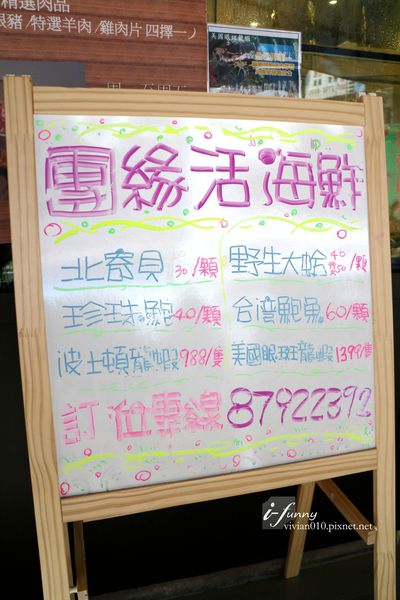 精選肉品
豬/特選羊肉/雞肉片 四擇一
美國眼斑龍蝦
團緣活海鮮
北寮貝 30/顆
野生大蛤 40/50/顆
珍珠鮑 40/顆
台湾鮑魚 60/顆
波士頓龍蝦 988/隻
美國眼斑龍蝦 1399/隻
訂位專線 87922392
i-funny
vivian010.pixnet.net